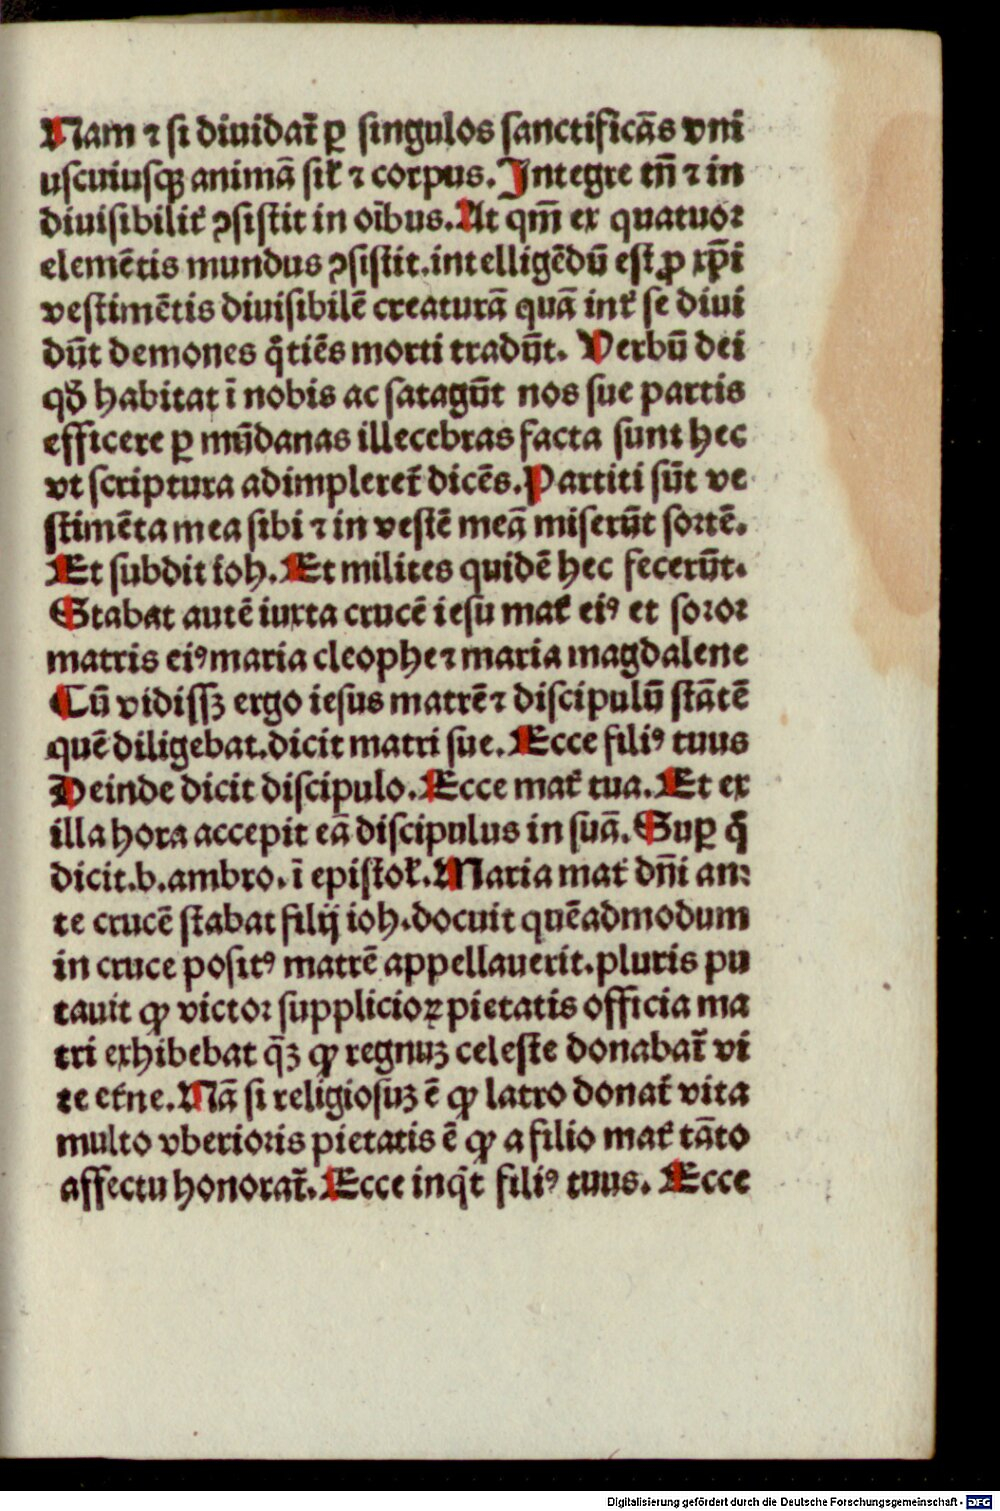 Nam ⁊ si diuidat̄ ꝑ singulos sanctificās vni
uscuiusqꝫ animā sił ⁊ corpus. Integre tñ ⁊ in
diuisibilit̉ ꝯsistit in oībus. At qm̄ ex quatuor
elemētis mundus ꝯsistit. intelligēdū est ꝓ xp̄i
vestimētis diuisibilē creaturā quā int̉ se diui
dūt demones q̄tiēs morti tradūt. Verbū dei
qđ habitat ī nobis ac satagūt nos sue partis
efficere ꝑ mūdanas illecebras facta sunt hec
vt scriptura adimpleret̄ dicēs. Partiti sūt ve
stimēta mea sibi ⁊ in vestē meā miserūt sortē.
Et subdit ioh. Et milites quidē hec fecerūt.
Stabat autē iuxta crucē iesu mat̉ eiꝰ et soror
matris eiꝰ maria cleophe ⁊ maria magdalene
Cū vidissꝫ ergo iesus matrē ⁊ discipulū stātē
quē diligebat. dicit matri sue. Ecce filiꝰ tuus
Deinde dicit discipulo. Ecce mat̉ tua. Et ex
illa hora accepit eā discipulus in suā. Suꝑ q̄
dicit. b. ambro. ī epistoł. Maria mat̉ dn̄i an⸗
te crucē stabat filij ioh. docuit quēadmodum
in cruce positꝰ matrē appellauerit. pluris pu
tauit ꝙ victor supplicioꝝ pietatis officia ma
tri exhibebat q̄ꝫ ꝙ regnuꝫ celeste donabat̄ vi
te et̉ne. Nā si religiosuꝫ ē ꝙ latro donat̉ vita
multo vberioris pietatis ē ꝙ a filio mat̉ tāto
affectu honorat̄. Ecce inq̇t filiꝰ tuus. Ecce
Digitalisierung gefördert durch die Deutsche Forschungsgemeinschaft - DFG